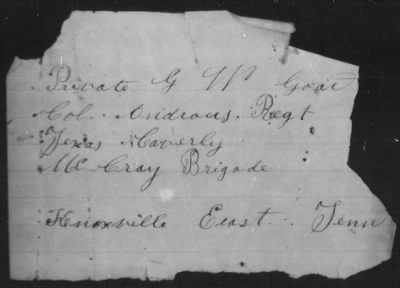 Private G W Goar
Col. Androus. Regt
Texas Caverly
Mc Cray Brigade
Knoxville East. Tenn